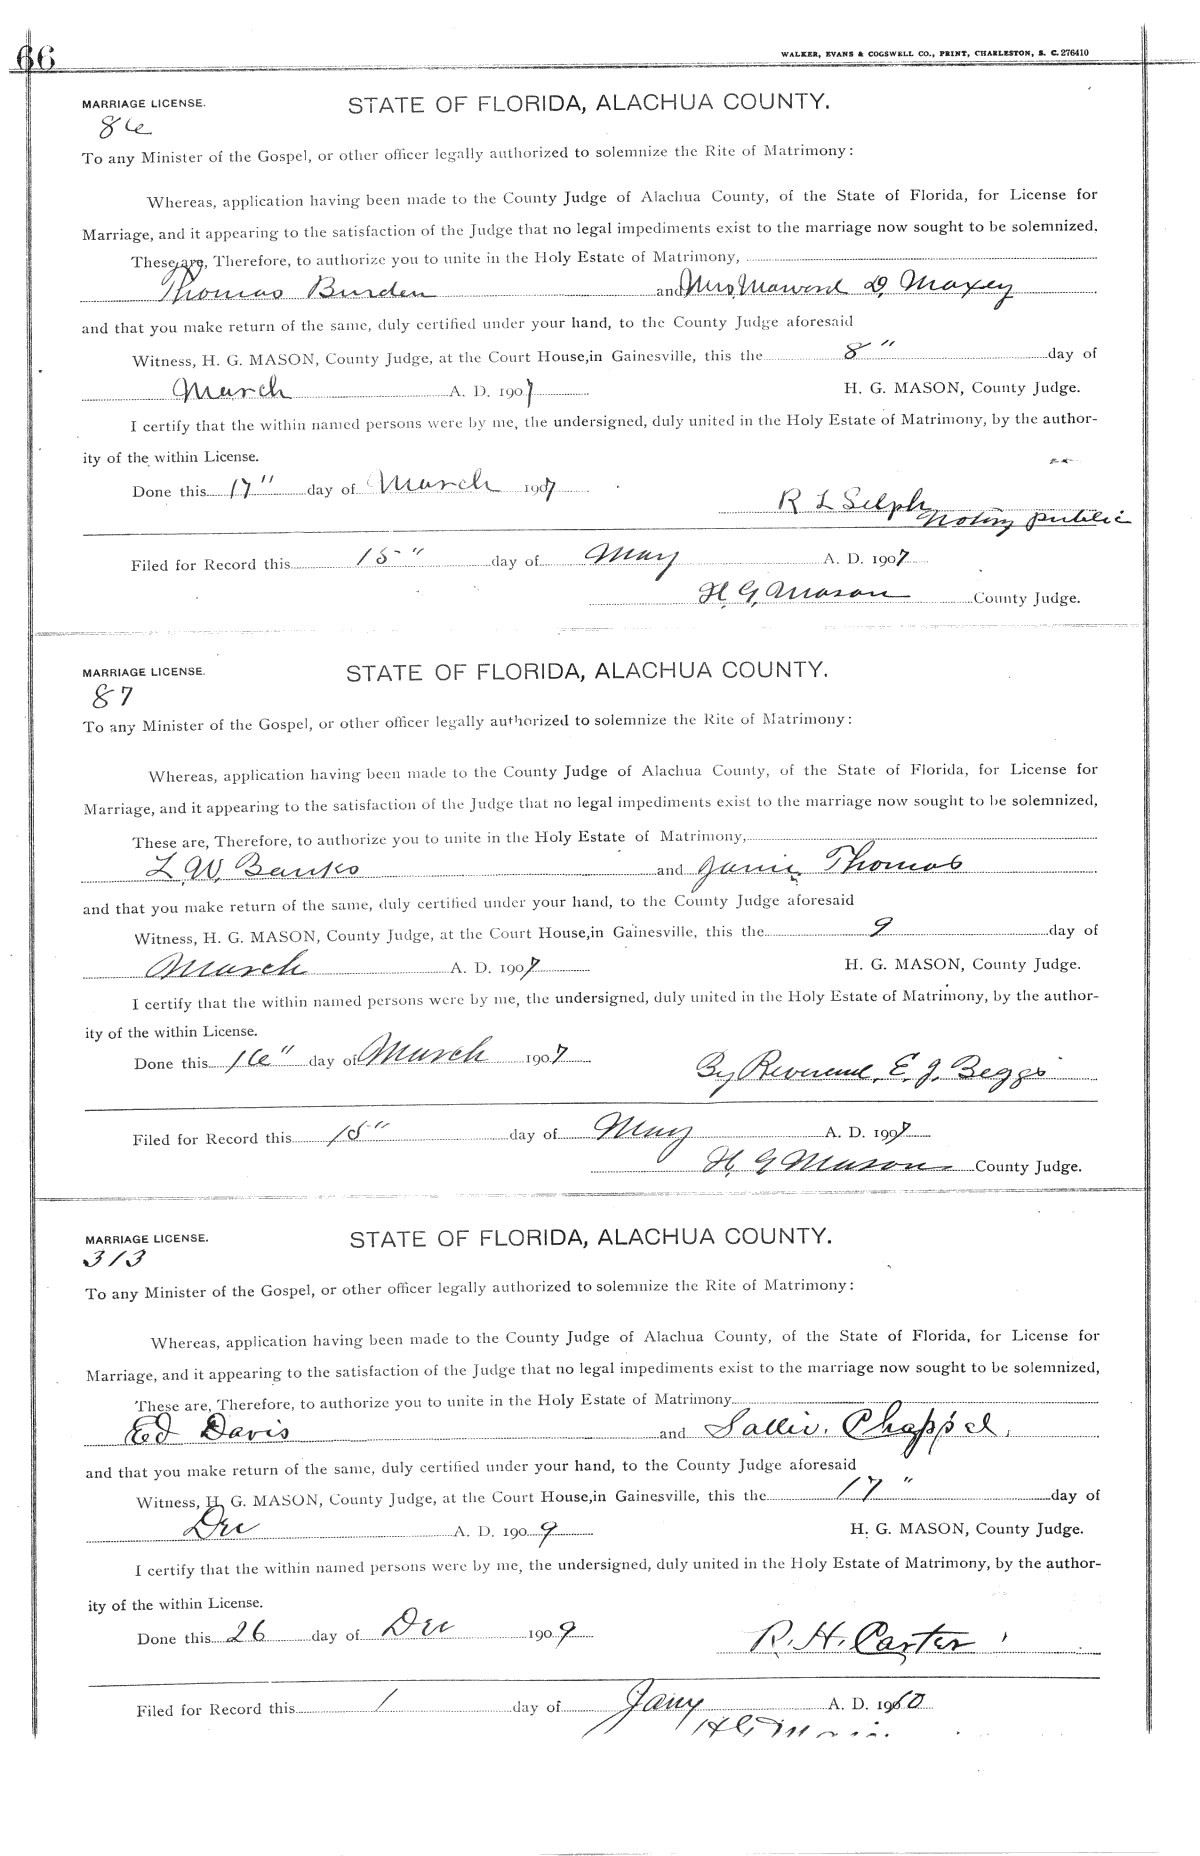 66
WALKER, EVANS & COGSWELL CO., PRINT, CHARLESTON, S. C. 276410
MARRIAGE LICENSE. STATE OF FLORIDA, ALACHUA COUNTY.
86
To any Minister of the Gospel, or other officer legally authorized to solemnize the Rite of Matrimony:
Whereas, application having been made to the County Judge of Alachua County, of the State of Florida, for License for
Marriage, and it appearing to the satisfaction of the Judge that no legal impediments exist to the marriage now sought to be solemnized.
These are, Therefore, to authorize you to unite in the Holy Estate of Matrimony,
Thomas Burden and Mrs. D. Maxey
and that you make return of the same, duly certified under your hand, to the County Judge aforesaid
Witness, H. G. MASON, County Judge, at the Court House, in Gainesville, this the 8" day of
March A. D. 1907 H. G. MASON, County Judge.
I certify that the within named persons were by me, the undersigned, duly united in the Holy Estate of Matrimony, by the author-
ity of the within License.
Done this 17" day of March 1907
R L Selph
Notiry public
Filed for Record this 15" day of May A. D. 1907
H. G. Mason County Judge.
MARRIAGE LICENSE. STATE OF FLORIDA, ALACHUA COUNTY.
87
To any Minister of the Gospel, or other officer legally authorized to solemnize the Rite of Matrimony:
Whereas, application having been made to the County Judge of Alachua County, of the State of Florida, for License for
Marriage, and it appearing to the satisfaction of the Judge that no legal impediments exist to the marriage now sought to be solemnized,
These are, Therefore, to authorize you to unite in the Holy Estate of Matrimony,
L. W. Banks and Janie Thomas
and that you make return of the same, duly certified under your hand, to the County Judge aforesaid
Witness, H. G. MASON, County Judge, at the Court House, in Gainesville, this the 9 day of
March A. D. 1907 H. G. MASON, County Judge.
I certify that the within named persons were by me, the undersigned, duly united in the Holy Estate of Matrimony, by the author-
ity of the within License.
Done this 16" day of March 1907
By Reverend, E. J. Beggs
Filed for Record this 15" day of May A. D. 1907
H. G Mason County Judge.
MARRIAGE LICENSE. STATE OF FLORIDA, ALACHUA COUNTY.
313
To any Minister of the Gospel, or other officer legally authorized to solemnize the Rite of Matrimony:
Whereas, application having been made to the County Judge of Alachua County, of the State of Florida, for License for
Marriage, and it appearing to the satisfaction of the Judge that no legal impediments exist to the marriage now sought to be solemnized,
These are, Therefore, to authorize you to unite in the Holy Estate of Matrimony
Ed Davis and Sallie Chappel
and that you make return of the same, duly certified under your hand, to the County Judge aforesaid
Witness, H. G. MASON, County Judge, at the Court House, in Gainesville, this the 17" day of
Dec A. D. 1909 H. G. MASON, County Judge.
I certify that the within named persons were by me, the undersigned, duly united in the Holy Estate of Matrimony, by the author-
ity of the within License.
Done this 26 day of Dec 1909
R. H. Carter
Filed for Record this 1 day of Jany A. D. 1910